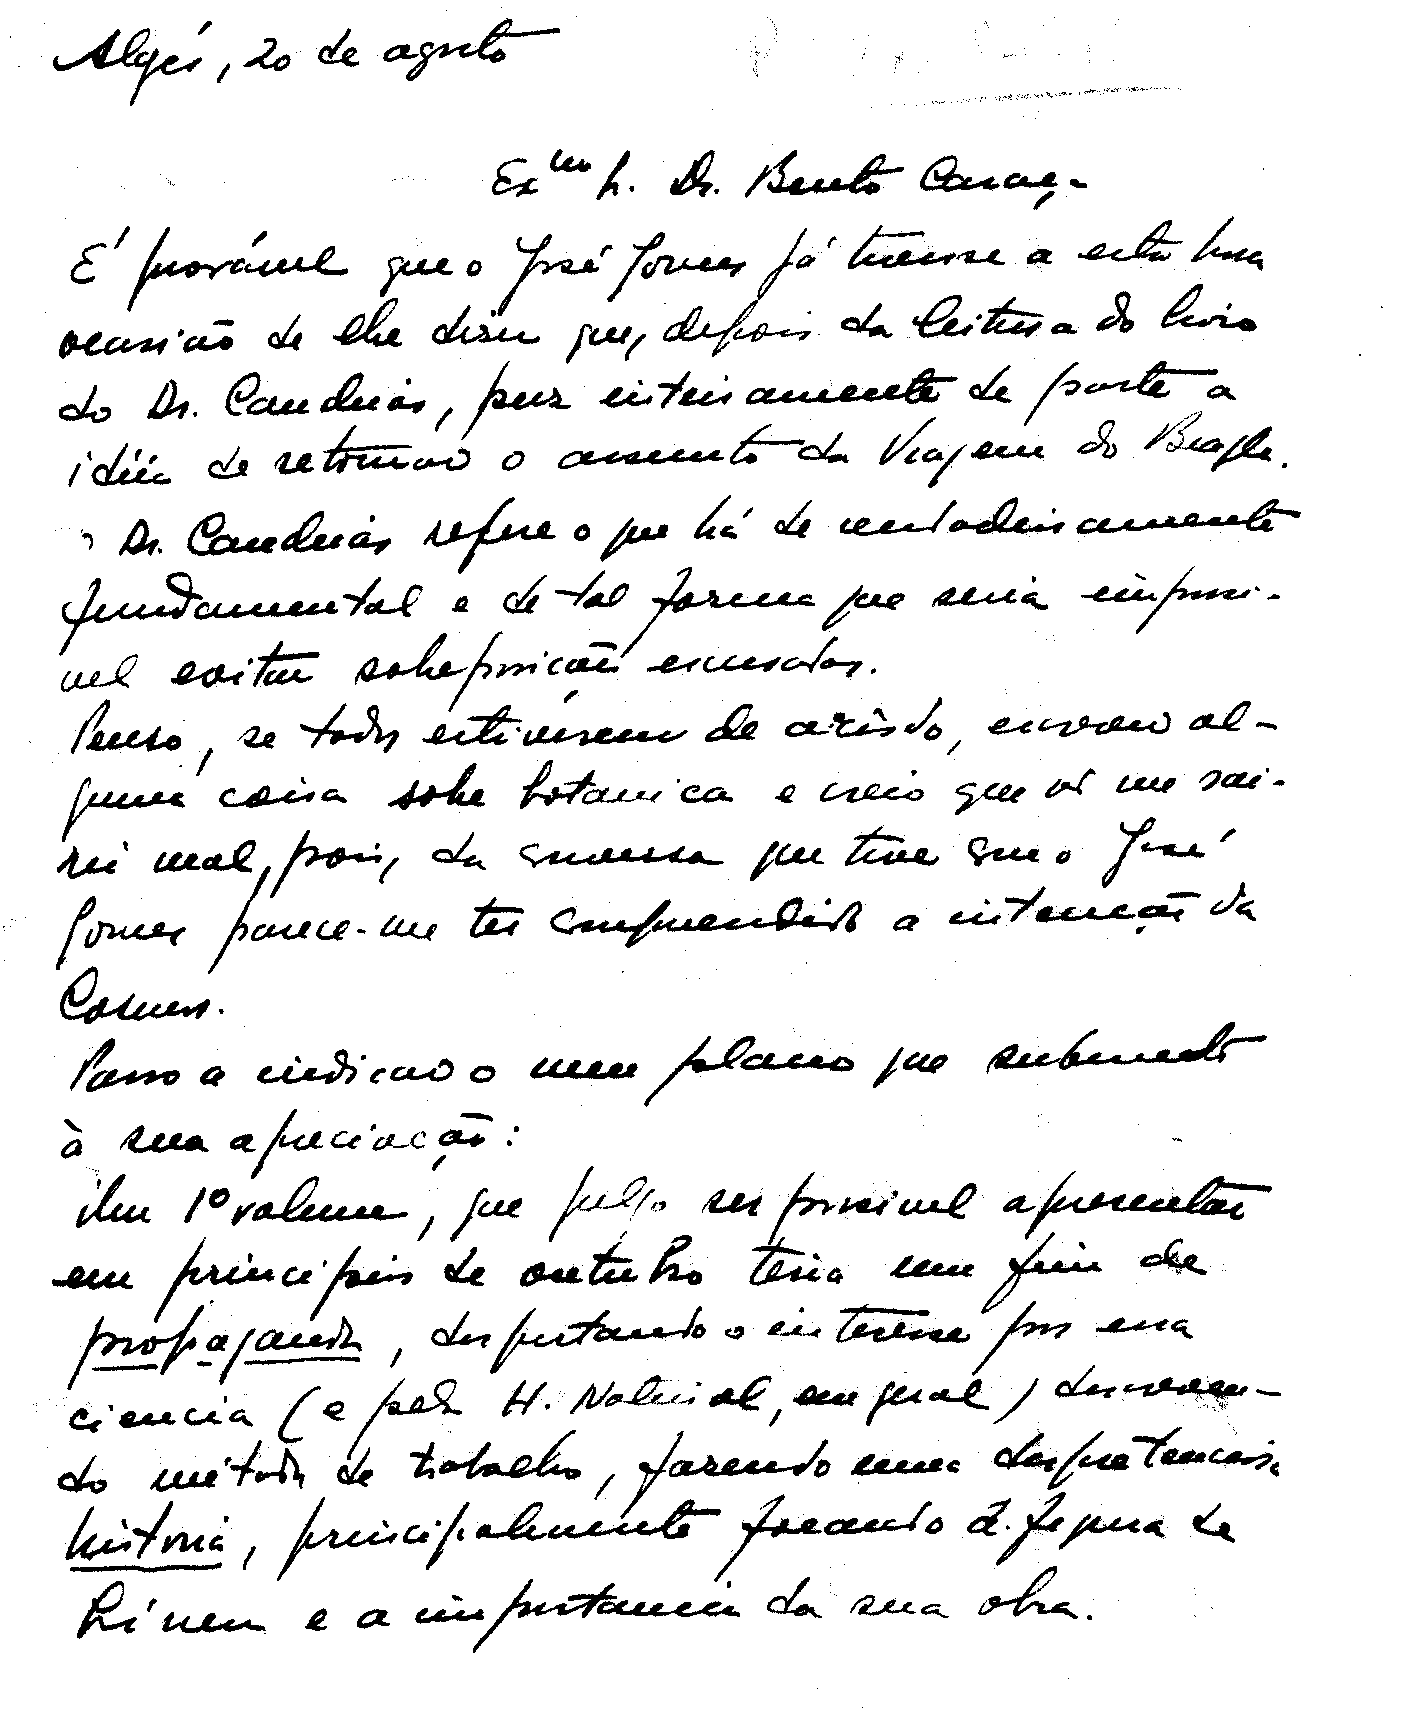 Algés, 20 de agosto
Exmo Sr. Dr. Bento Caraça
É provável que o José Gomes já tivesse a esta hora
ocasião de lhe dizer que, depois da leitura do livro
do Dr. Candeias, puz inteiramente de parte a
idéia de retomar o assunto da Viagem do Beagle.
O Dr. Candeias refere o que há de verdadeiramente
fundamental e de tal forma que seria impossi-
vel evitar sobreposições escusadas.
Penso, se todos estivérem de acôrdo, escrever al-
guma coisa sobre botanica e creio que não me sai-
rei mal, pois, da conversa que tive com o José
Gomes parece-me ter compreendido a intenção da
Cosmos.
Passo a indicar o meu plano que submeto
à sua apreciação:
Um 1º volume, que julgo ser possivel apresentar
em principios de outubro teria um fim de
propaganda, despertando o interesse por essa
ciencia (e pela H. Natural, em geral) descreven-
do métodos de trabalho, fazendo uma despretenciosa
historia, principalmente focando a figura de
Líneu e a importancia da sua obra.